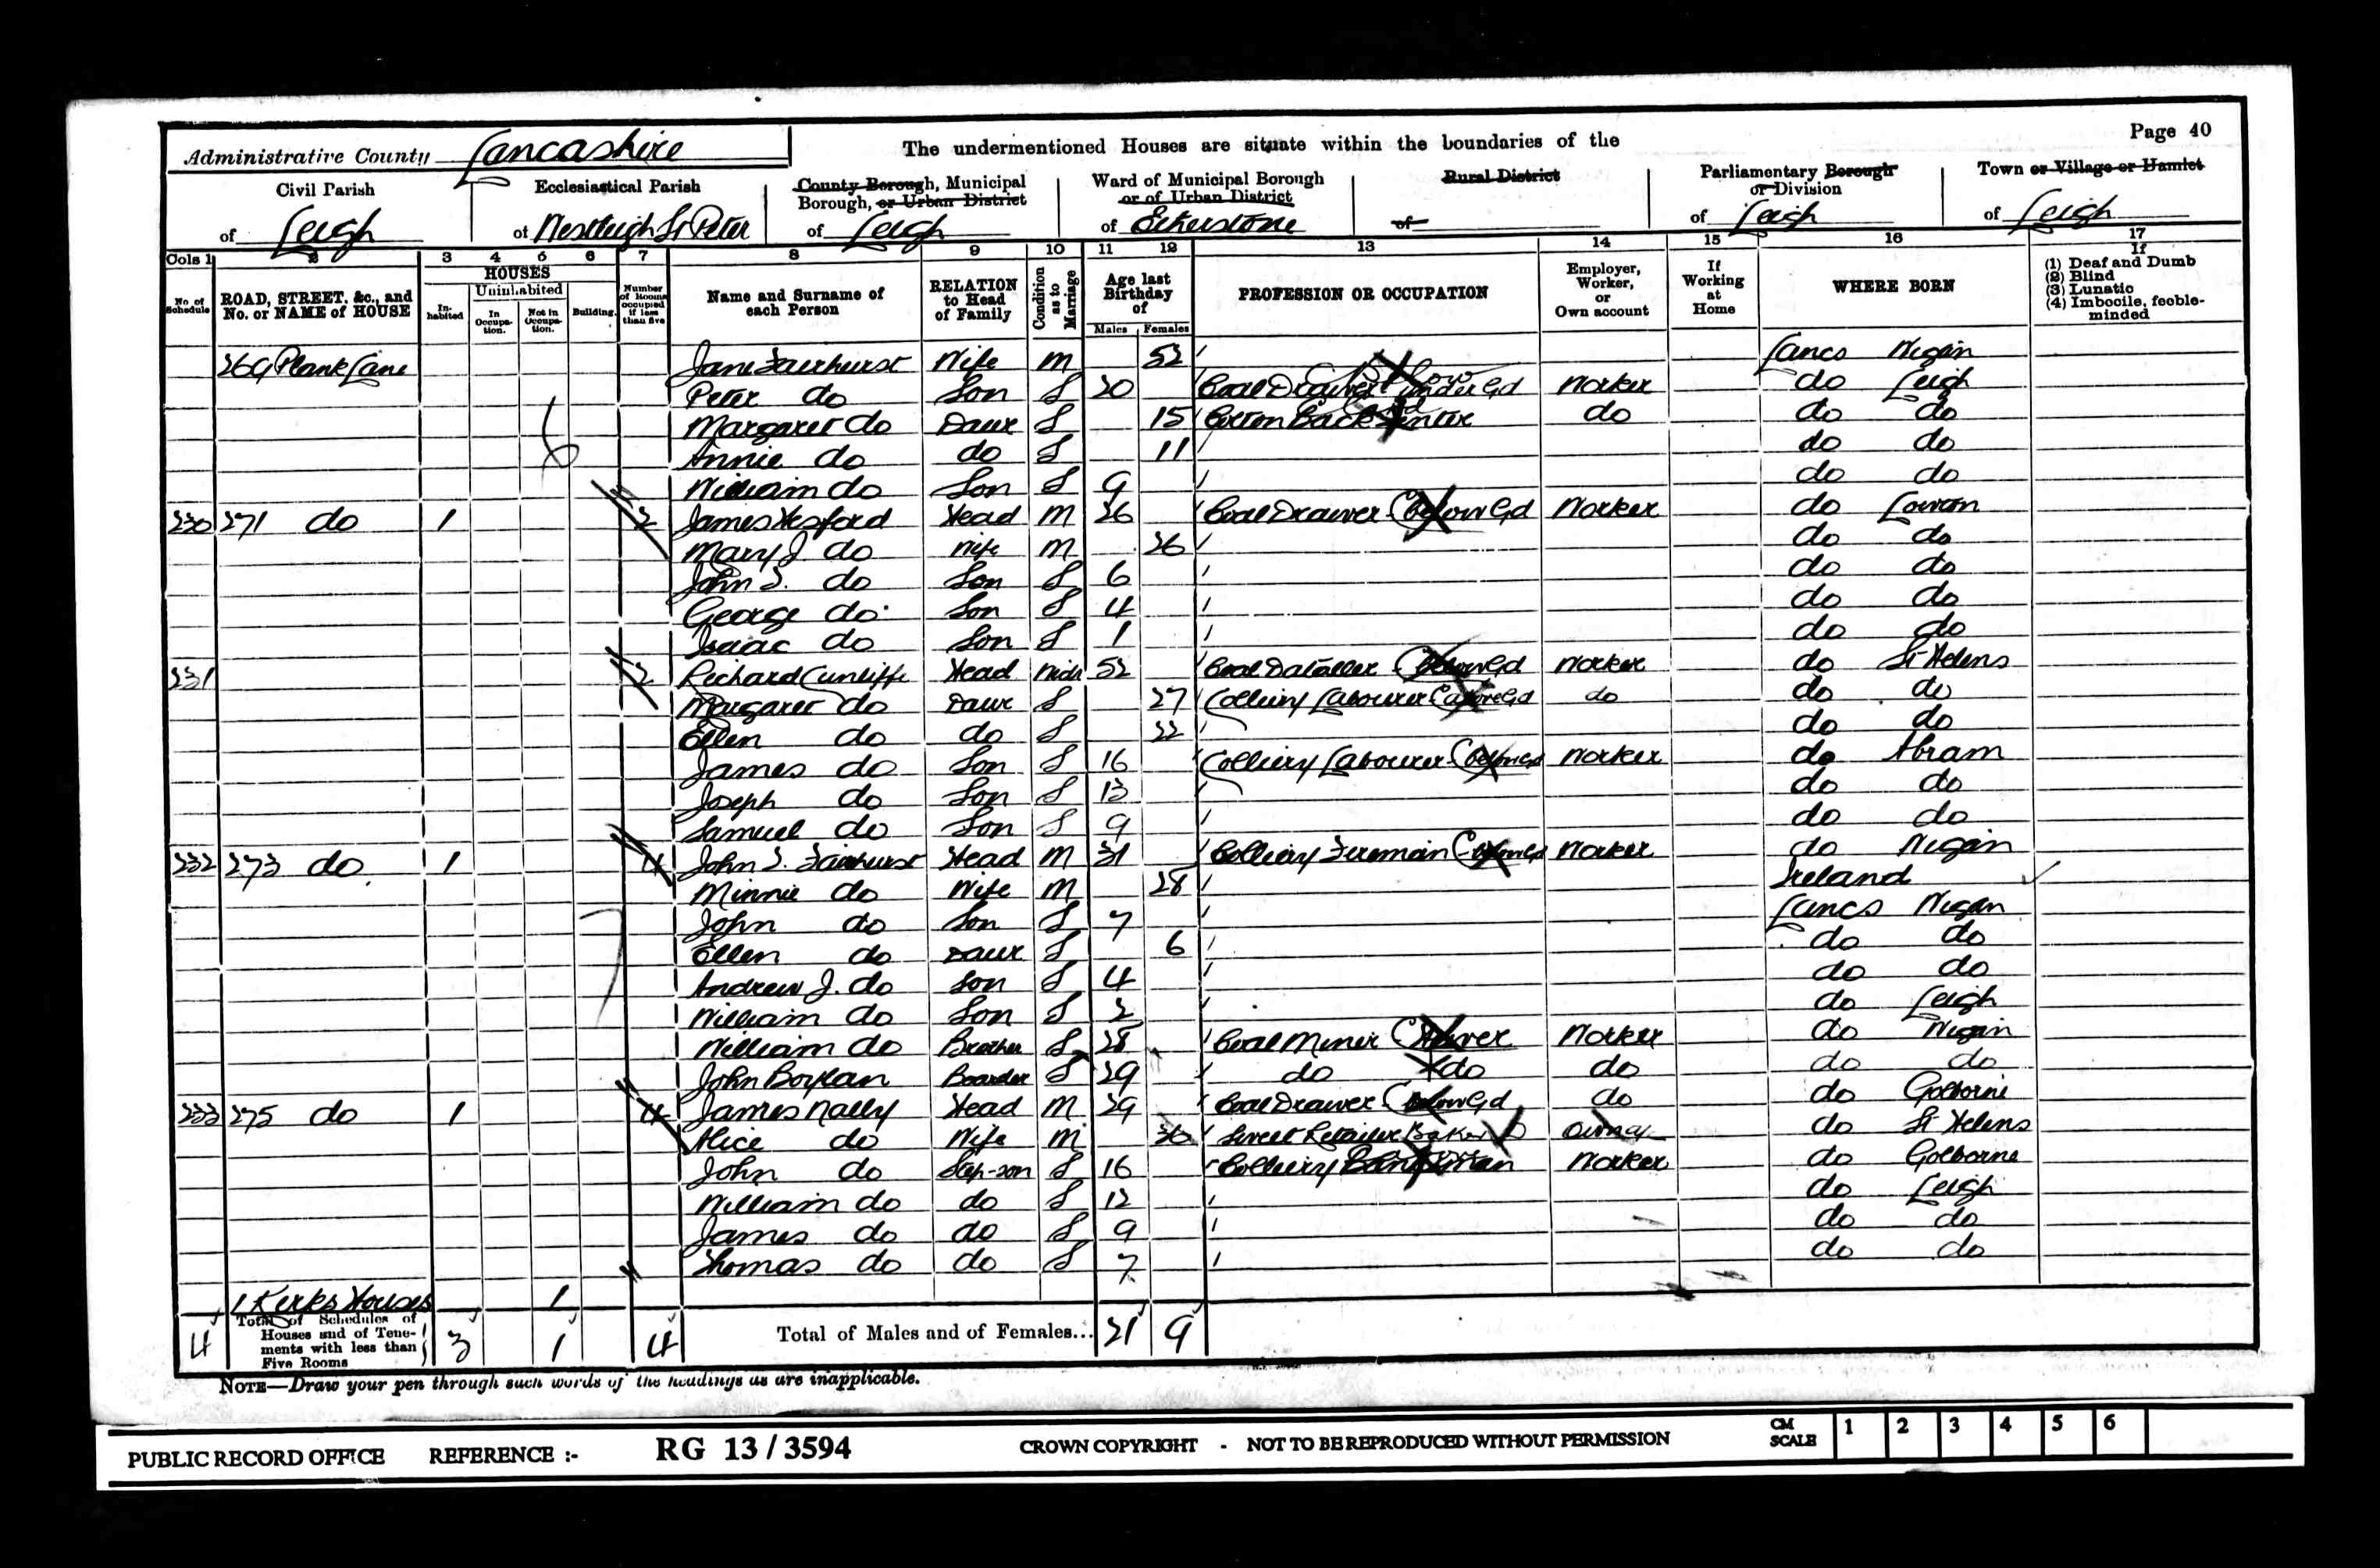 Page 40
Administrative County Lancashire
The undermentioned Houses are situate within the boundaries of the
Civil Parish of Leigh
Ecclesiastical Parish of Westleigh St Peter
County Borough, Municipal Borough, or Urban District of Leigh
Ward of Municipal Borough or of Urban District of Etherstone
Rural District of
Parliamentary Borough or Division of Leigh
Town or Village or Hamlet of Leigh
Cols 1 2 3 4 5 6 7 8 9 10 11 12 13 14 15 16 17
No of Schedule
ROAD, STREET, &c., and No. or NAME of HOUSE
HOUSES
Inhabited
Uninhabited
In Occupation.
Not in Occupation.
Building.
Number of Rooms occupied if less than five
Name and Surname of each Person
RELATION to Head of Family
Condition as to Marriage
Age last Birthday of
Males Females
PROFESSION OR OCCUPATION
Employer, Worker, or Own account
If Working at Home
WHERE BORN
If
(1) Deaf and Dumb
(2) Blind
(3) Lunatic
(4) Imbecile, feeble-minded
269 Plank Lane Jane Fairhurst Wife M 52 Lancs Wigan
Peter do Son S 20 Coal Drawer under Gd Worker do Leigh
Margaret do Daur S 15 Cotton Back Tenter do do do
Annie do do S 11 do do
William do Son S 9 do do
230 271 do 1 2 James Hesford Head M 26 Coal Drawer (below Gd Worker do Lowton
Mary J. do Wife M 26 do do
John T. do Son S 6 do do
George do Son S 4 do do
Isaac do Son S 1 do do
231 2 Richard Cunliffe Head Widr 52 Coal Dataller (below Gd Worker do St Helens
Margaret do Daur S 27 Colliery Labourer (above Gd do do do
Ellen do do S 22 do do
James do Son S 16 Colliery Labourer (below Gd Worker do Abram
Joseph do Son S 13 do do
Samuel do Son S 9 do do
232 273 do 1 4 John T. Fairhurst Head M 31 Colliery Fireman (below Gd Worker do Wigan
Minnie do Wife M 28 Ireland
John do Son S 7 Lancs Wigan
Ellen do Daur S 6 do do
Andrew J. do Son S 4 do do
William do Son S 2 do Leigh
William do Brother S 28 Coal Miner (Hewer Worker do Wigan
John Boylan Boarder S 29 do do do do do
233 275 do 1 4 James Nally Head M 29 Coal Drawer (below Gd do do Golborne
Alice do Wife M 36 Sweet Retailer Baker do St Helens
John do Step-son S 16 Colliery Worker do Golborne
William do do S 12 do Leigh
James do do S 9 do do
Thomas do do S 7 do do
1 Kirks Houses 1
4 Total of Schedules of Houses and of Tenements with less than Five Rooms 3 1 4 Total of Males and of Females... 21 9
NOTE—Draw your pen through such words of the headings as are inapplicable.
PUBLIC RECORD OFFICE REFERENCE :- RG 13 / 3594 CROWN COPYRIGHT - NOT TO BE REPRODUCED WITHOUT PERMISSION CM SCALE 1 2 3 4 5 6